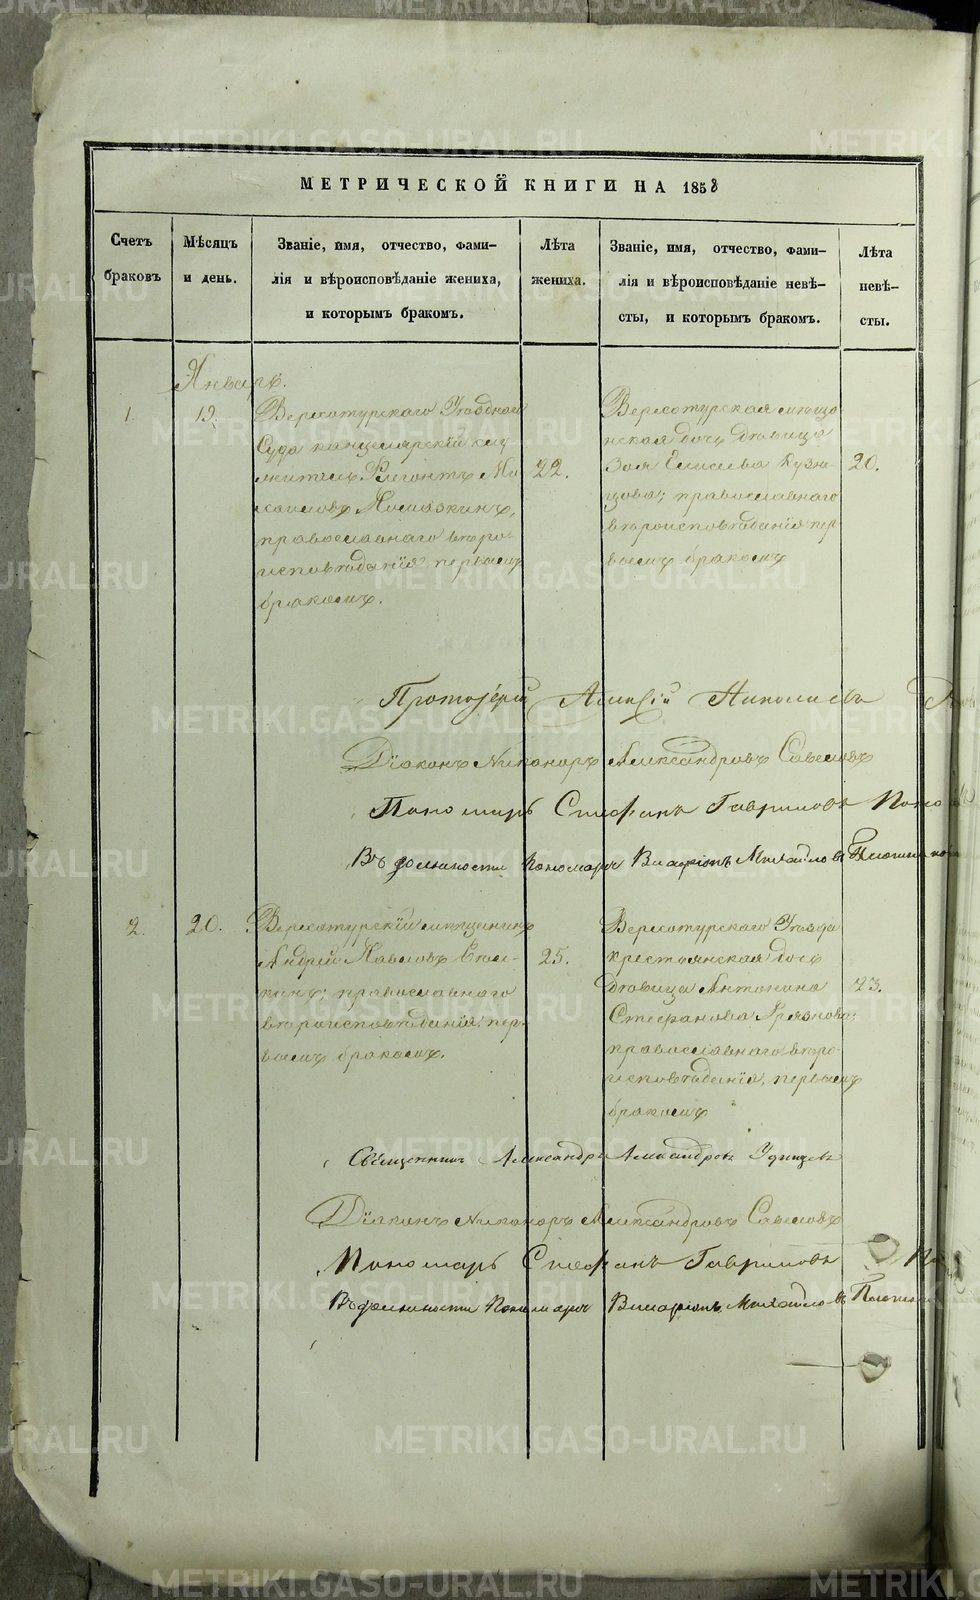 МЕТРИЧЕСКОЙ КНИГИ НА 1858
Счетъ
браковъ
Мѣсяцъ
и день.
Званіе, имя, отчество, фами-
лія и вѣроисповѣданіе жениха,
и которымъ бракомъ.
Лѣта
жениха.
Званіе, имя, отчество, фами-
лія и вѣроисповѣданіе невѣ-
сты, и которымъ бракомъ.
Лѣта
невѣ-
сты.
Январь.
1.
12.
Верхотурскаго Уѣзднаго
Суда канцелярскій слу
житель
православнаго вѣро-
исповѣданія, первымъ
бракомъ.
22.
Верхотурская мѣща
нская дочь дѣвица
Зоя Елисеева Кузне
цова; православнаго
вѣроисповѣданія пер
вымъ бракомъ
20.
Протоіерей Алексій Николаевъ
Діаконъ Никаноръ Александровъ Савеловъ
Пономарь Стефанъ Гавриловъ Поно
Въ должности Пономаря Иларіонъ Михайловъ
2.
20.
Верхотурскій мѣщанинъ
Андрей Павловъ
православнаго
вѣроисповѣданія, пер-
вымъ бракомъ.
25.
Верхотурскаго Уѣзда
крестьянская дочь
дѣвица Антонина
Стефанова Грязнова;
православнаго вѣро-
исповѣданія, первымъ
бракомъ
23.
Священникъ Александръ Александровъ Удинцевъ
Діаконъ Никаноръ Александровъ Савеловъ
Пономарь Стефанъ Гавриловъ По
Въ должности Пономаря Иларіонъ Михайловъ
METRIKI.GASO-URAL.RU